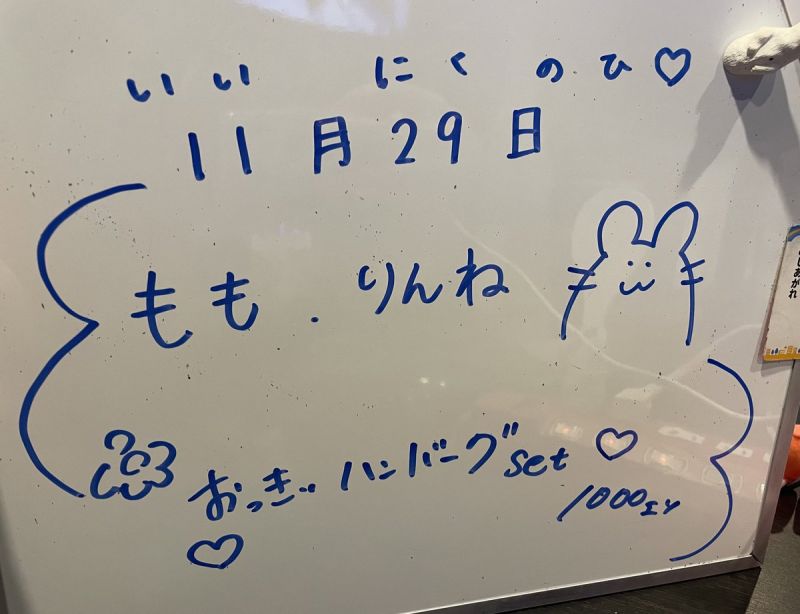 いい にくのひ♡
11月29日
もも . りんね
おっきぃハンバーグset♡
1000エン
♡